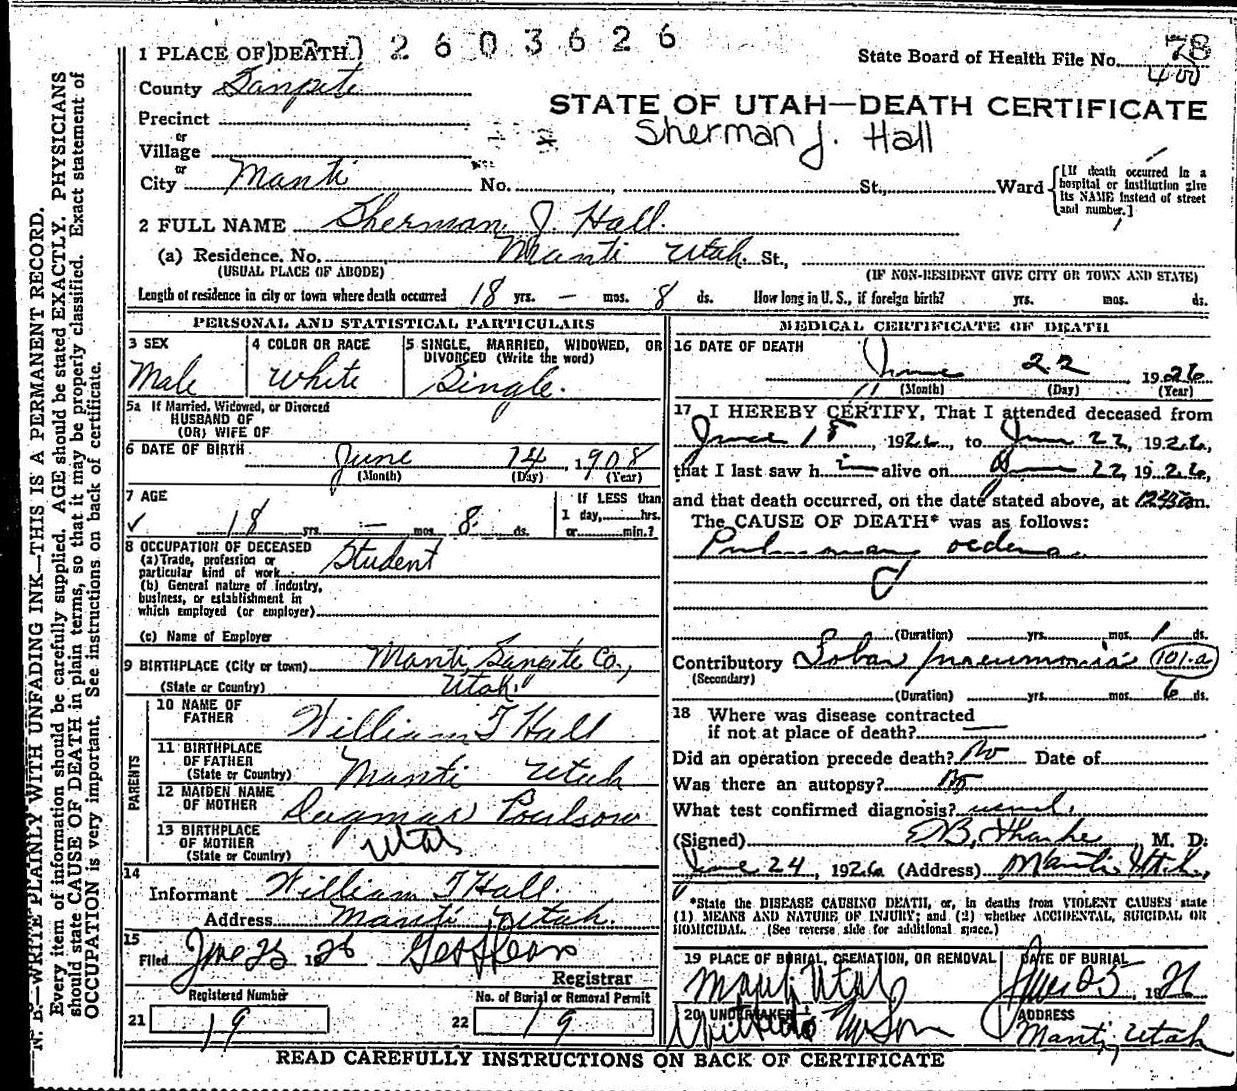 2603626
1 PLACE OF DEATH
State Board of Health File No. 78
400
County Sanpete
STATE OF UTAH—DEATH CERTIFICATE
Precinct
Sherman J. Hall
or
Village
or
City Manti No. St., Ward
[If death occurred in a hospital or institution give its NAME instead of street and number.]
2 FULL NAME Sherman J. Hall.
(a) Residence. No. Manti Utah. St.,
(USUAL PLACE OF ABODE) (IF NON-RESIDENT GIVE CITY OR TOWN AND STATE)
Length of residence in city or town where death occurred 18 yrs. — mos. 8 ds. How long in U. S., if foreign birth? yrs. mos. ds.
PERSONAL AND STATISTICAL PARTICULARS
3 SEX 4 COLOR OR RACE 5 SINGLE, MARRIED, WIDOWED, OR
DIVORCED (Write the word)
Male White Single.
5a If Married, Widowed, or Divorced
HUSBAND OF
(OR) WIFE OF
6 DATE OF BIRTH June 14, 1908
(Month) (Day) (Year)
7 AGE If LESS than
✓ 18 yrs. — mos. 8 ds. 1 day, hrs.
or min.?
8 OCCUPATION OF DECEASED
(a) Trade, profession or
particular kind of work Student
(b) General nature of industry,
business, or establishment in
which employed (or employer)
(c) Name of Employer
9 BIRTHPLACE (City or town) Manti, Sanpete Co.,
(State or Country) Utah.
PARENTS
10 NAME OF
FATHER William T Hall
11 BIRTHPLACE
OF FATHER
(State or Country) Manti Utah
12 MAIDEN NAME
OF MOTHER Dagmar Poulson
13 BIRTHPLACE
OF MOTHER
(State or Country) Utah
14
Informant William T Hall
Address Manti, Utah.
15
Filed June 25 1926
Registrar
Registered Number No. of Burial or Removal Permit
21 19 22 19
MEDICAL CERTIFICATE OF DEATH
16 DATE OF DEATH
June 22 1926
(Month) (Day) (Year)
17 I HEREBY CERTIFY, That I attended deceased from
June 15, 1926, to June 22, 1926,
that I last saw him alive on June 22, 1926,
and that death occurred, on the date stated above, at m.
The CAUSE OF DEATH* was as follows:
Pulmonary oedema
(Duration) yrs. mos. 1 ds.
Contributory Lobar pneumonia 101-a
(Secondary)
(Duration) yrs. mos. 6 ds.
18 Where was disease contracted
if not at place of death? —
Did an operation precede death? No Date of
Was there an autopsy? No
What test confirmed diagnosis? usual.
(Signed) M. D.
June 24, 1926 (Address) Manti, Utah,
*State the DISEASE CAUSING DEATH, or, in deaths from VIOLENT CAUSES state
(1) MEANS AND NATURE OF INJURY; and (2) whether ACCIDENTAL, SUICIDAL OR
HOMICIDAL. (See reverse side for additional space.)
19 PLACE OF BURIAL, CREMATION, OR REMOVAL DATE OF BURIAL
Manti Utah June 25, 1926
20 UNDERTAKER ADDRESS
Manti, Utah
READ CAREFULLY INSTRUCTIONS ON BACK OF CERTIFICATE
N. B.—WRITE PLAINLY WITH UNFADING INK—THIS IS A PERMANENT RECORD.
Every item of information should be carefully supplied. AGE should be stated EXACTLY. PHYSICIANS
should state CAUSE OF DEATH in plain terms, so that it may be properly classified. Exact statement of
OCCUPATION is very important. See instructions on back of certificate.